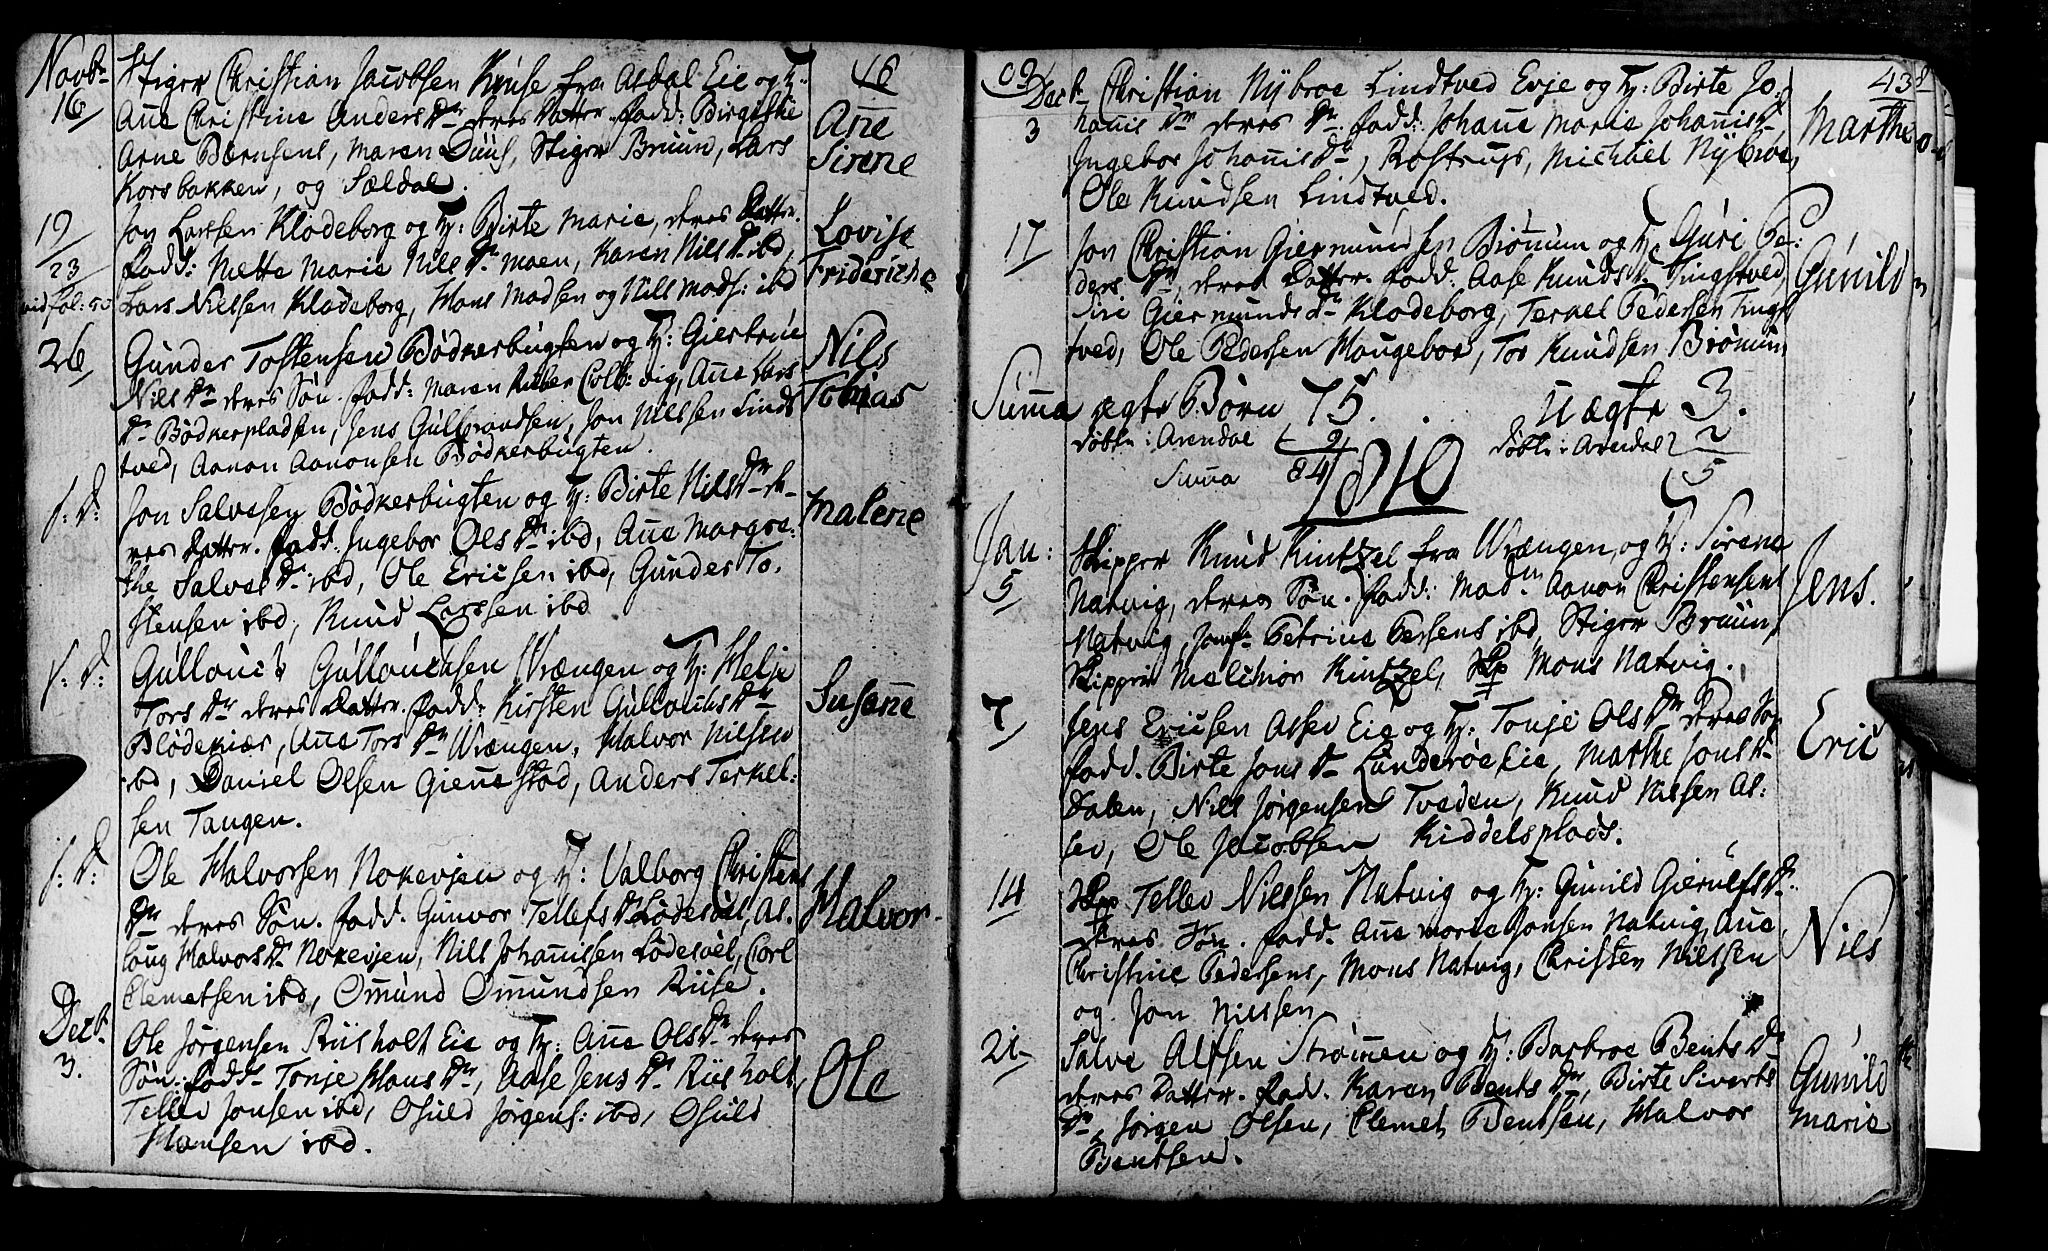 Novbr
16
Stigr Christian Jacobsen Kruse fra Asdal Eie og H:
Añe Christine Anders Dr deres Datter. fadd: Birgithe
Arne Bærnsens, Maren Duus, Stigr Bruun, Lars
Korsbakken, og Sældal.
Ane
Sirene
19
23
vid fol: 50
Jon Larssen Klodeborg og H: Birte Marie, deres Dattr.
fadd: Mette Marie Nils Dr Moen, Karen Nils D. ibd,
Lars Nielsen Klodeborg, Hans Madsen og Nils Mads: ibd
Lovise
Frideriche
26
Gunder Tostensen Bödkerbugten og H: Giertrue
Nils Dr deres Sön. fadd: Maren Colb:, Añe Lars
Dr Bödkerpladsen, Jens Gulbrandsen, Jon Nilssen Lind
tved, Aanon Aanonsen Bödkerbugten.
Nils
Tobias
s: D:
Jon Salvesen Bödkerbugten og H: Birte Nils Dr de-
res Dattr. fadd: Ingebor Ols Dr ibd, Añe Margre:
the Salves Dr ibd, Ole Ericsen ibd, Gunder To.
stensen ibd, Knud Larssen ibd
Malene
s: D:
Gullouch Gullouchsen Wrængen og H: Helje
Tors Dr deres Dattr. fadd: Kirsten Gullouchs Dr
Blödekiær, Añe Tors Dr Wrængen, Halvor Nilsen
ibd, Daniel Olsen Gieñestad, Anders Terkel:
sen Tangen.
Susañe
s: D:
Ole Halvorsen Nokevjen og H: Valborg Christens
Dr deres Sön. fadd. Gunvor Tellefs D. Lödesöl, As.
loug Halvors Dr Nokevjen, Nils Johañisen Lödesöl, Carl
Clemetsen ibd, Omund Omundsen Riise.
Halvor
Decb.
3.
Ole Jörgensen Riisholt Eie og H: Añe Ols Dr deres
Sön. fadd. Tonje Hans Dr, Aase Jens Dr Riisholt,
Tellev Jonsen ibd, Osuld Jörgens: ibd, Osuld
Hansen ibd.
Ole
16
09
43
Decb
3
Christian Nybroe Lindtved Evje og H: Birte Jo:
hañis Dr deres Dr. fadd: Johañe Marie Johañis D,
Ingebor Johañis Dr, Rostrups, Michael Nybroe,
Ole Knudsen Lindtved.
Marthe
17
Jon Christian Giermundsen Bröñum og H. Guri Pe:
ders Dr, deres Dattr. fadd: Aase Knuds Dr Tingstved,
Siri Giermunds Dr Klodeborg, Terkel Pedersen Tingst
tved, Ole Pedersen Haugeboe, Tor Knudsen Bröñum
Gunild
Suma ægte Börn 75. Uægte 3.
döbte i Arendal 9 döbte i Arendal 2
Suma 84 5
1810
Jan:
5
Skipper Knud Kintzel fra Wrængen, og H: Sirene
Natvig, deres Sön. fadd: Madm Aanon Christensens
Natvig, Jomf: Petrine Persens ibd, Stiger Bruun,
Skipper Melchior Kintzel, Skp Mons Natvig.
Jens.
7
Jens Ericsen Assev Eie og H: Tonje Ols Dr deres Sö.
fadd. Birte Jons Dr Lunderöe Eie, Marthe Jons D.
Dalen, Nils Jörgensen Tveden, Knud Nilsen As:
sev, Ole Jacobsen Kiddelsplads.
Eric
14
Skp Tellev Nielsen Natvig og H: Gunild Gierulfs Dr.
deres Sön. fadd. Añe Marie Jonsen Natvig, Añe
Christine Pedersens, Mons Natvig, Christen Nielsen
og. Jon Nielsen
Nils
21
Salve Alfsen Strömen og H: Barbroe Bents Dr
deres Dattr. fadd. Karen Bents Dr, Birte Siverts
Dr, Jörgen Olsen, Clemet Bentsen, Halvor
Bentsen.
Gunild
Marie